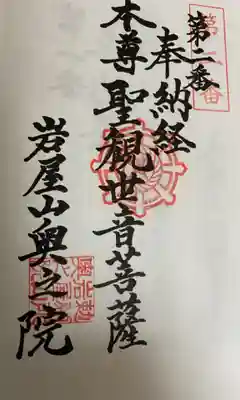 第二番
奉納経
本尊聖観世音菩薩
岩屋山奥之院
第二番